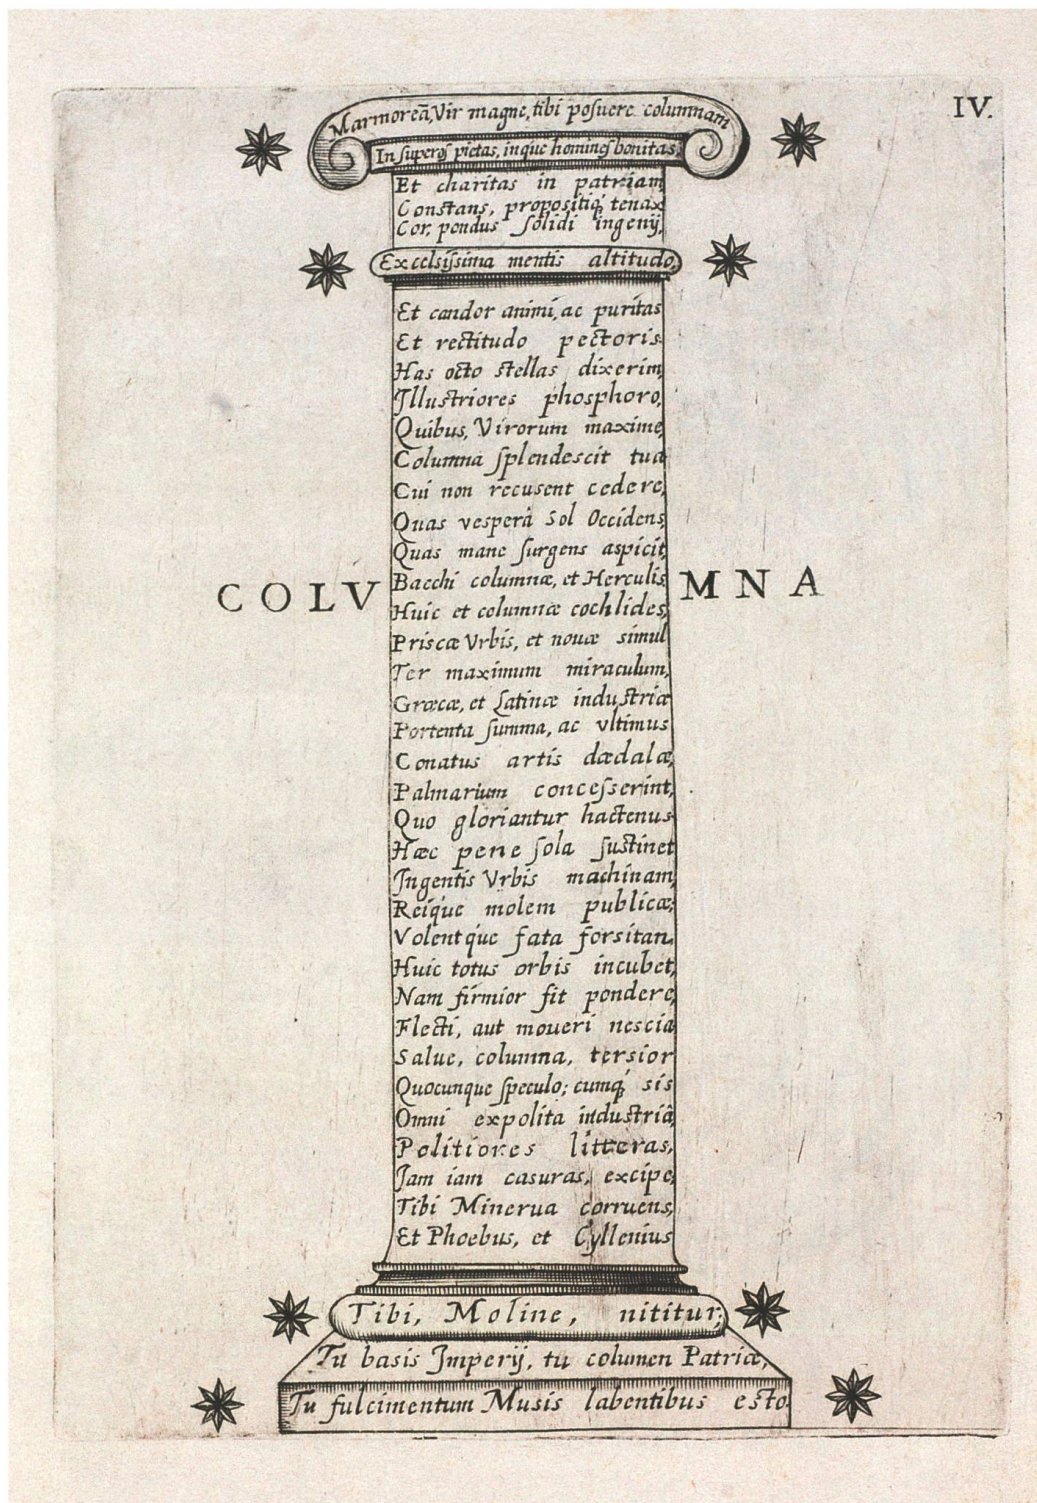 IV.
Marmoreā, Vir magne, tibi posuere columnam
In superos pietas, inque homines bonitas,
Et charitas in patriam,
Constans, propositiq́; tenax
Cor, pondus solidi ingenij,
Excelsissima mentis altitudo,
Et candor animi, ac puritas
Et rectitudo pectoris.
Has octo stellas dixerim,
Illustriores phosphoro,
Quibus, Virorum maxime,
Columna splendescit tua
Cui non recusent cedere,
Quas vesperâ Sol Occidens,
Quas mane surgens aspicit,
Bacchi columnæ, et Herculis,
COLVMNA
Huic et columnæ cochlides,
Priscæ Vrbis, et nouæ simul
Ter maximum miraculum,
Græcæ, et Latinæ industriæ
Portenta summa, ac vltimus
Conatus artis dædalæ,
Palmarium concesserint,
Quo gloriantur hactenus
Hæc pene sola sustinet
Ingentis Vrbis machinam,
Reiq́ue molem publicæ;
Volentq́ue fata forsitan,
Huic totus orbis incubet,
Nam firmior fit pondere,
Flecti, aut moueri nescia
Salue, columna, tersior
Quocunque speculo; cumq́; sis
Omni expolita industriâ,
Politiores litteras,
Jam iam casuras, excipe,
Tibi Minerua corruens,
Et Phoebus, et Cyllenius
Tibi, Moline, nititur;
Tu basis Imperij, tu columen Patriæ,
Tu fulcimentum Musis labentibus esto.